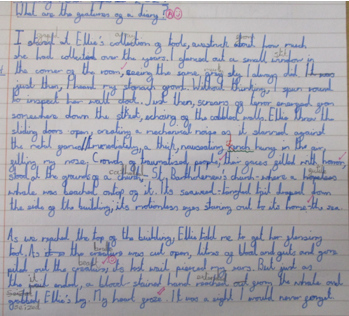 What are the features of a diary?
I stared at Ellie's collection of tools, awestruck about how much
she had collected over the years. I glanced out a small window in
the corner of the room, seeing the same grey sky I always did. It was
just then, I heard my stomach growl. Without thinking, I spun round
to inspect her wall clock. Just then, screams of terror emerged from
somewhere down the street, echoing of the cobbled walls. Ellie threw the
sliding doors open, creating a mechanical noise as it slammed against
the metal frame. Immediately, a thick, nauseating stench hung in the air
filling my nose; Crowds of traumatised people, their faces filled with horror,
stood at the grounds of a church - St. Bartholomew's church - where a humongous
whale was beached ontop of it. Its seaweed-tangled tail draped down
the side of the building, its motionless eyes staring out to its home: the sea.
As we reached the top of the building, Ellie told me to get her
tool. As the creature was cut open, litres of blood and guts and gore
out the creature; its
, a blood-stained hand reached out from the whale and
grabbed Ellie's leg. My heart froze. It was a sight I would never forget